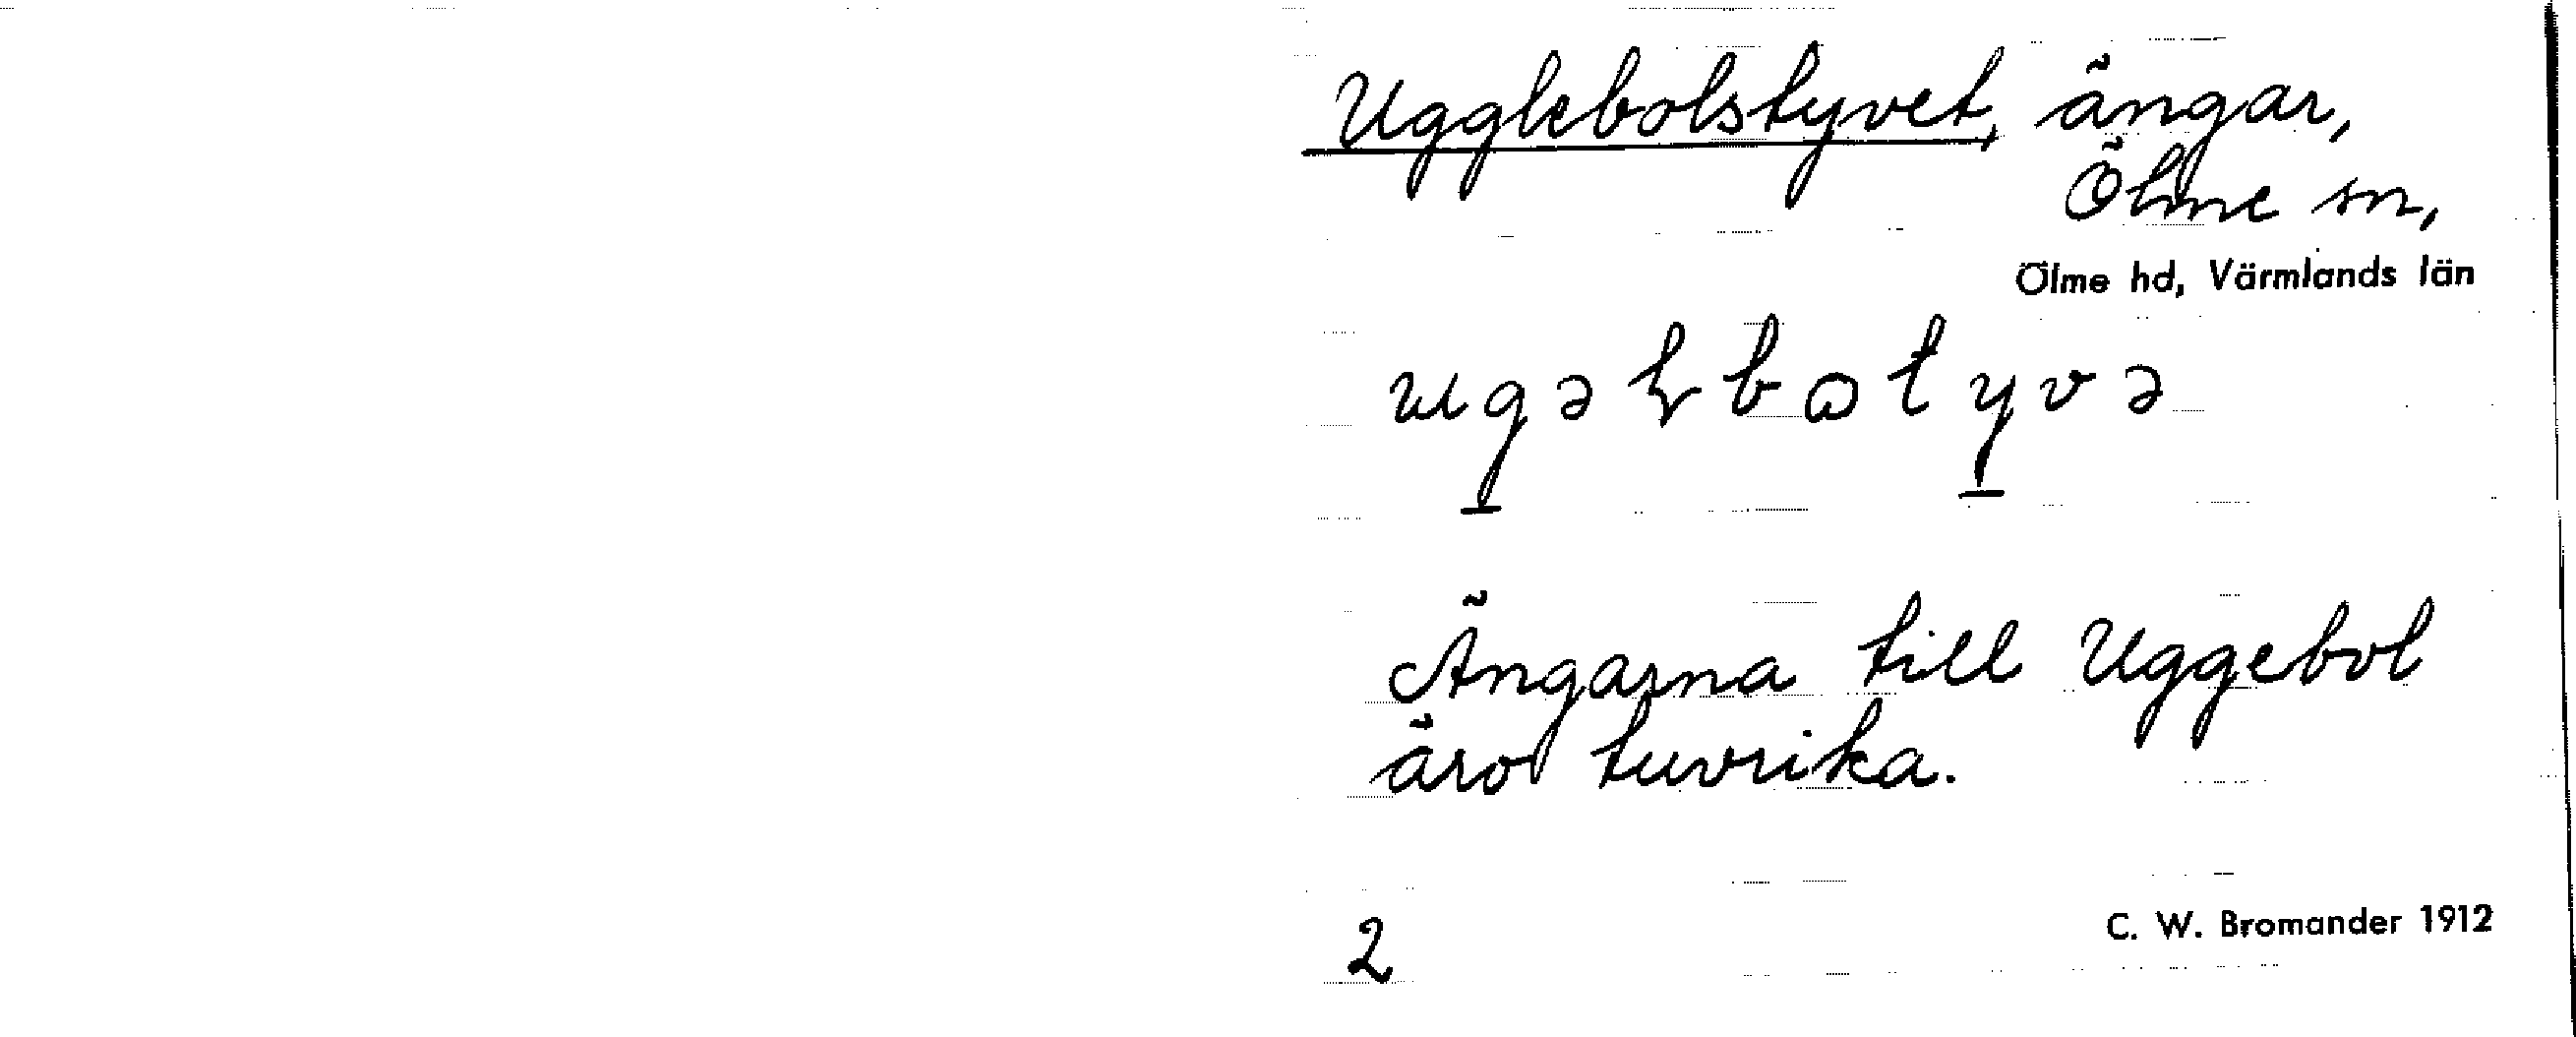 Ugglebolstyvet, ängar,
Ölme sn,
Ölme hd, Värmlands län
Ängarna till Uggebol
äro tuvrika.
2
C. W. Bromander 1912